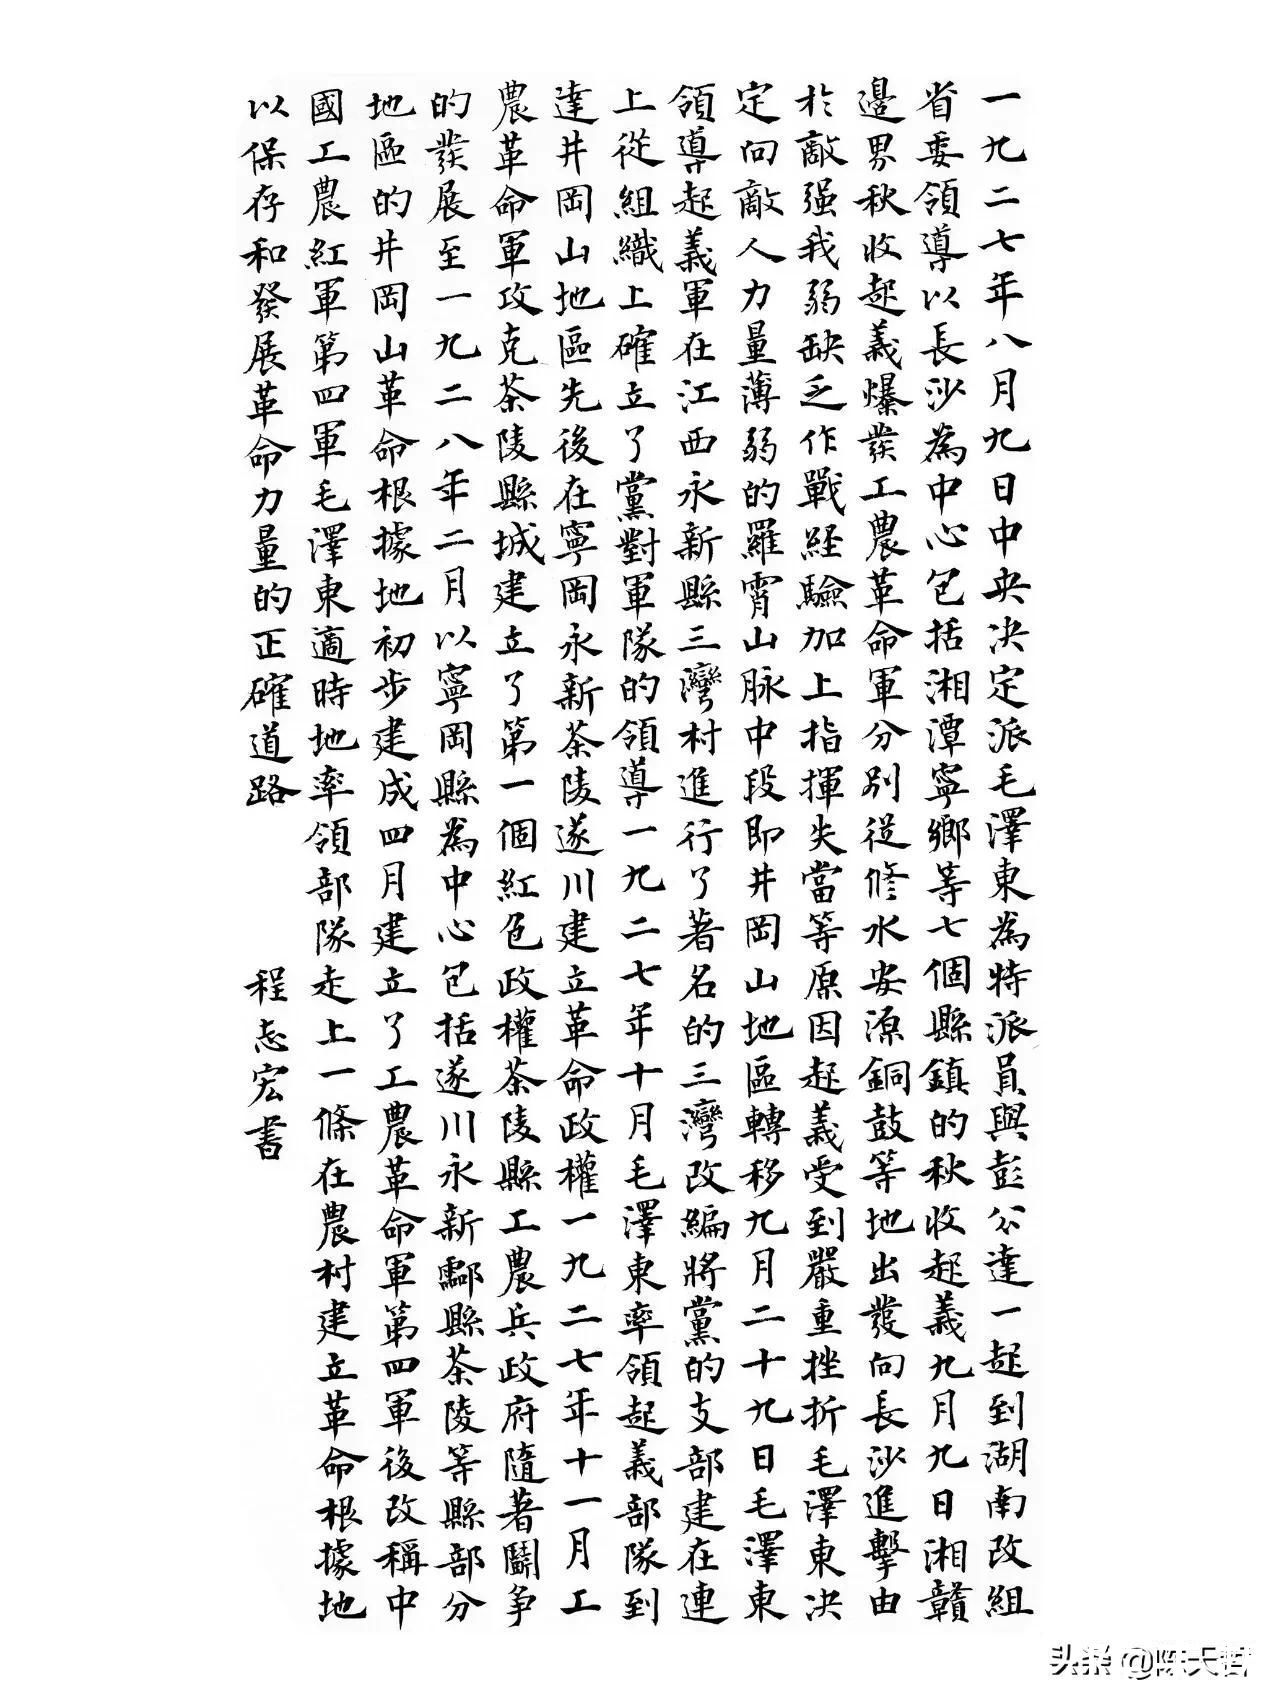 一九二七年八月九日中央決定派毛澤東為特派員與彭公達一起到湖南改組
省委領導以長沙為中心包括湘潭寧鄉等七個縣鎮的秋收起義九月九日湘贛
邊界秋收起義爆發工農革命軍分別從修水安源銅鼓等地出發向長沙進擊由
於敵强我弱缺乏作戰経驗加上指揮失當等原因起義受到嚴重挫折毛澤東决
定向敵人力量薄弱的羅霄山脉中段即井岡山地區轉移九月二十九日毛澤東
領導起義軍在江西永新縣三灣村進行了著名的三灣改編將黨的支部建在連
上從組織上確立了黨對軍隊的領導一九二七年十月毛澤東率領起義部隊到
達井岡山地區先後在寧岡永新茶陵遂川建立革命政權一九二七年十一月工
農革命軍攻克茶陵縣城建立了第一個紅色政權茶陵縣工農兵政府隨著鬭争
的發展至一九二八年二月以寧岡縣為中心包括遂川永新酃縣茶陵等縣部分
地區的井岡山革命根據地初步建成四月建立了工農革命軍第四軍後改稱中
國工農紅軍第四軍毛澤東適時地率領部隊走上一條在農村建立革命根據地
以保存和發展革命力量的正確道路 程志宏書
头条 @陈天哲